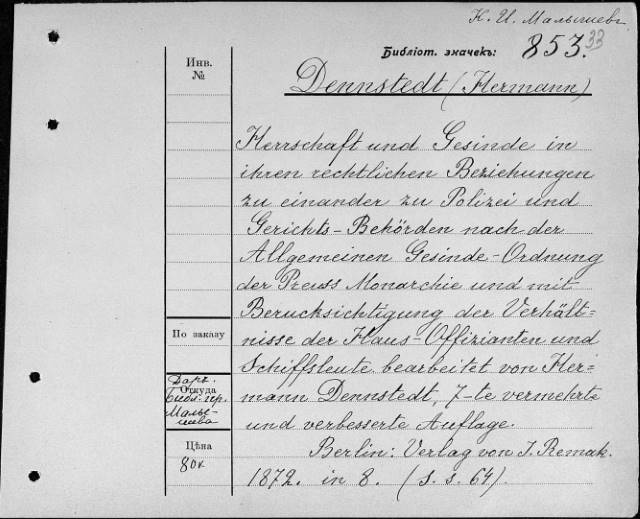 К. И. Малышевъ
Библіот. значекъ: 853. 33
Инв.
№
Dennstedt (Hermann)
Herrschaft und Gesinde in
ihren rechtlichen Beziehungen
zu einander zu Polizei und
Gerichts-Behörden nach der
Allgemeinen Gesinde-Ordnung
der Preuss Monarchie und mit
Berucksichtigung der Verhält=
nisse der Haus-Offizianten und
Schiffsleute bearbeitet von Her=
mann Dennstedt, 7-te vermehrte
und verbesserte Auflage.
Berlin: Verlag von J. Remak.
1872. in 8. (s. s. 64).
По заказу
Даръ.
Откуда
Библ. гр.
Малы-
шева
Цѣна
80к